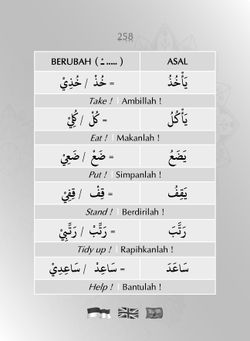 258
BERUBAH ( ـْ ..... ) ASAL
خُذْ / خُذِيْ = يَأْخُذُ
Take ! | Ambillah !
كُلْ / كُلِيْ = يَأْكُلُ
Eat ! | Makanlah !
ضَعْ / ضَعِيْ = يَضَعُ
Put ! | Simpanlah !
قِفْ / قِفِيْ = يَقِفُ
Stand ! | Berdirilah !
رَتِّبْ / رَتِّبِيْ = رَتَّبَ
Tidy up ! | Rapihkanlah !
سَاعِدْ / سَاعِدِيْ = سَاعَدَ
Help ! | Bantulah !